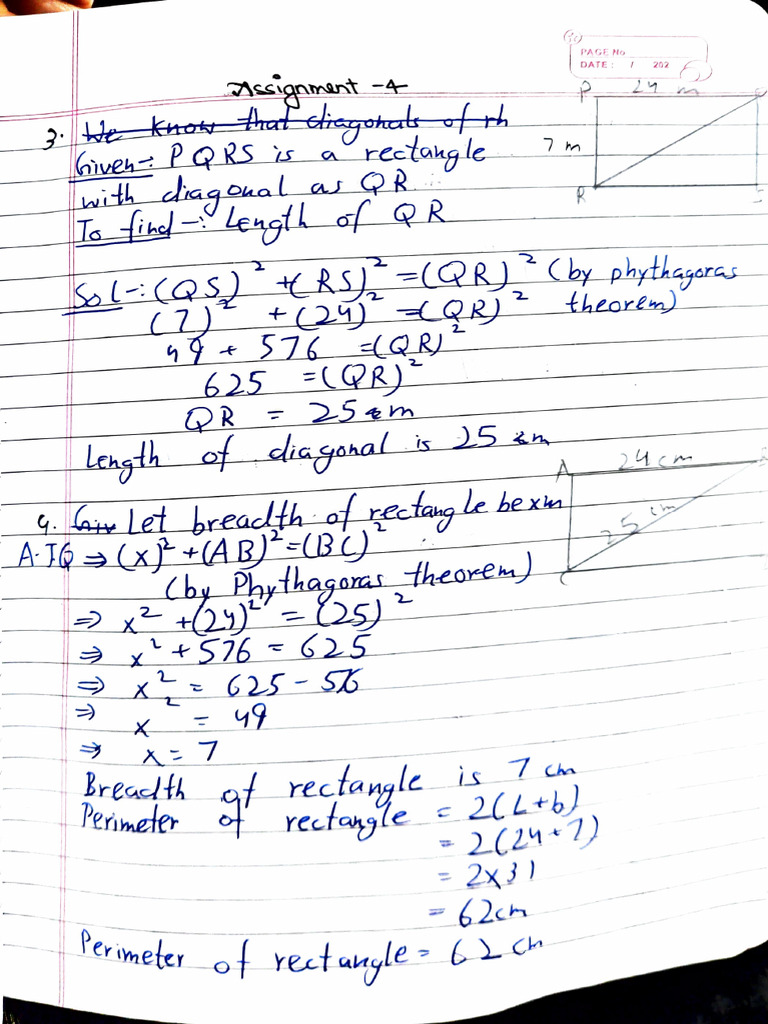 PAGE No
DATE: / 202
Assignment -4
P 24 m
7 m
R
3. We know that diagonals of rh
Given:- PQRS is a rectangle
with diagonal as QR
To find -: Length of QR
Sol -: (QS)² + (RS)² = (QR)² (by phythagoras
theorem)
(7)² + (24)² = (QR)²
49 + 576 = (QR)²
625 = (QR)²
QR = 25 m
Length of diagonal is 25 m
A 24 cm
25 cm
C
4. Giv Let breadth of rectangle be x m
A.T.Q ⇒ (x)² + (AB)² = (BC)²
(by Phythagoras theorem)
⇒ x² + (24)² = (25)²
⇒ x² + 576 = 625
⇒ x² = 625 - 576
⇒ x² = 49
⇒ x = 7
Breadth of rectangle is 7 cm
Perimeter of rectangle = 2(L+b)
= 2(24+7)
= 2x31
= 62cm
Perimeter of rectangle = 62 cm